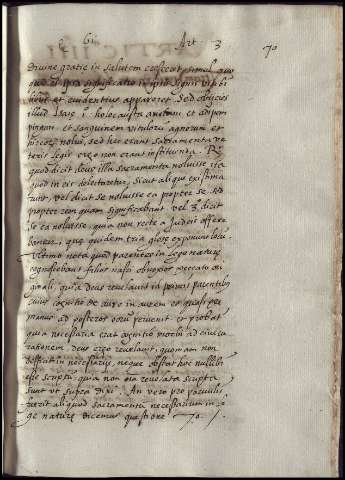 6i Art 3 70
divinę gratię in salutem
quod ipsa significatio in ipsis signis visibi
et evidentius appareret sed obiicies
illud Isaię 1. holocausta arietum et adipem
pinguium et sanguinem vitulorum agnorum et
hircorum nolui, sed hęc erant sacramenta ve
teris legis ergo non erant instituta. R.
quod dicit deus illa sacramenta noluisse ita
quod in eis delectaretur, sicut aliqui existima
runt, vel dicit se noluisse ea propter se sed
propter rem quam significabant vel 3. dicit
se ea noluisse, quia non recte a Judeis offere
bantur, quę quidem tria glosę exponunt
Ultimo nota quod parentes in lege naturę
cognoscebant filios nasci obnoxios peccato ori
ginali, quia deus revelavit id primis parentibus
cuius cognitio de aure in aurem et quasi per
manus ad posteros eorum pervenit et probat
quia necessaria erat cognitio morbi ad eius cu
rationem deus ergo revelavit, quoniam non
deficit in necessariis, neque obstat hoc nullibi
esse scriptum quia non omnia revelata scripta
sunt ut supra dixi. An vero pro parvulis
fuerit aliquod sacramentum necessarium in le
ge naturę dicemus quęstione 70. /.